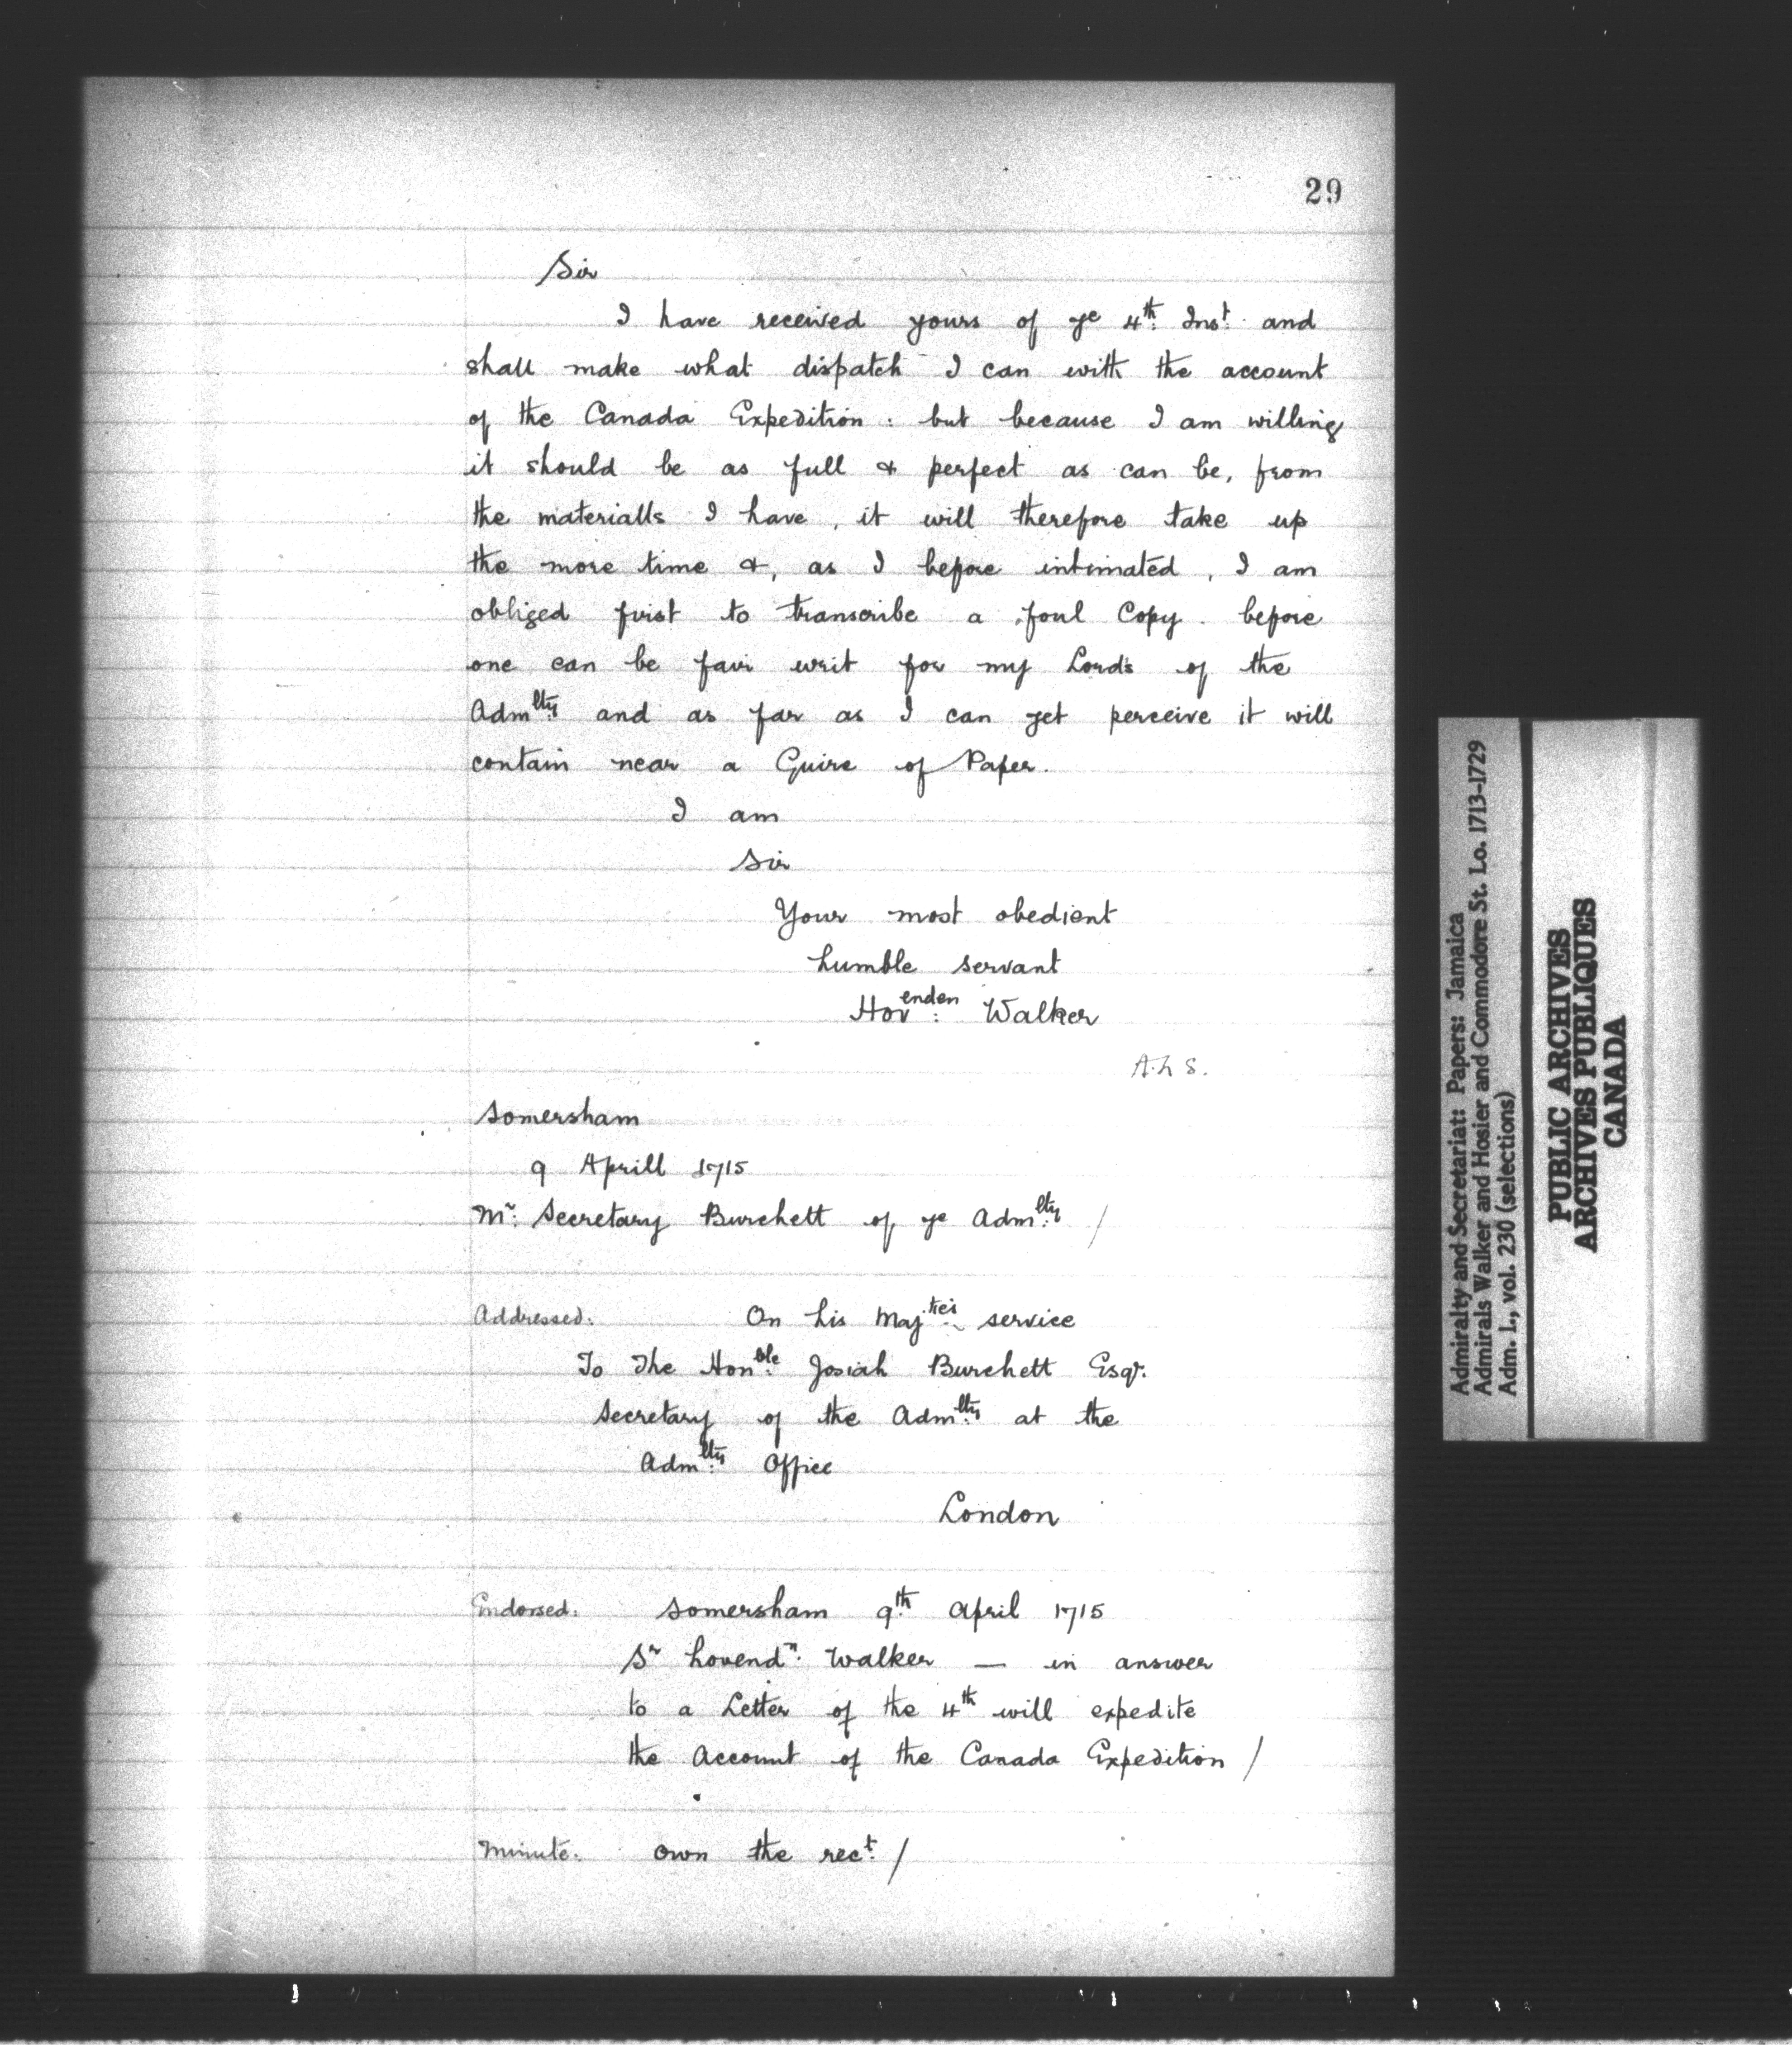 29
Sir
I have received yours of ye 4th. Inst. and
shall make what dispatch I can with the account
of the Canada Expedition : but because I am willing
it should be as full & perfect as can be, from
the materialls I have, it will therefore take up
the more time &, as I before intimated, I am
obliged first to transcribe a foul Copy before
one can be fair writ for my Lords of the
Admlty. and as far as I can yet perceive it will
contain near a Quire of Paper.
I am
Sir
Your most obedient
humble servant
Hovenden: Walker
A.L.S.
Somersham
9 Aprill 1715
Mr. Secretary Burchett of ye Admlty. /
Addressed: On his Majties service
To The Honble. Josiah Burchett Esqr.
Secretary of the Admlty. at the
Admlty. Office
London
Endorsed: Somersham 9th. April 1715
Sr hovendn. Walker — in answer
to a Letter of the 4th will expedite
the Account of the Canada Expedition /
Minute: own the rect. /
Admiralty and Secretariat: Papers: Jamaica
Admirals Walker and Hosier and Commodore St. Lo. 1713-1729
Adm. 1., vol. 230 (selections)
PUBLIC ARCHIVES
ARCHIVES PUBLIQUES
CANADA